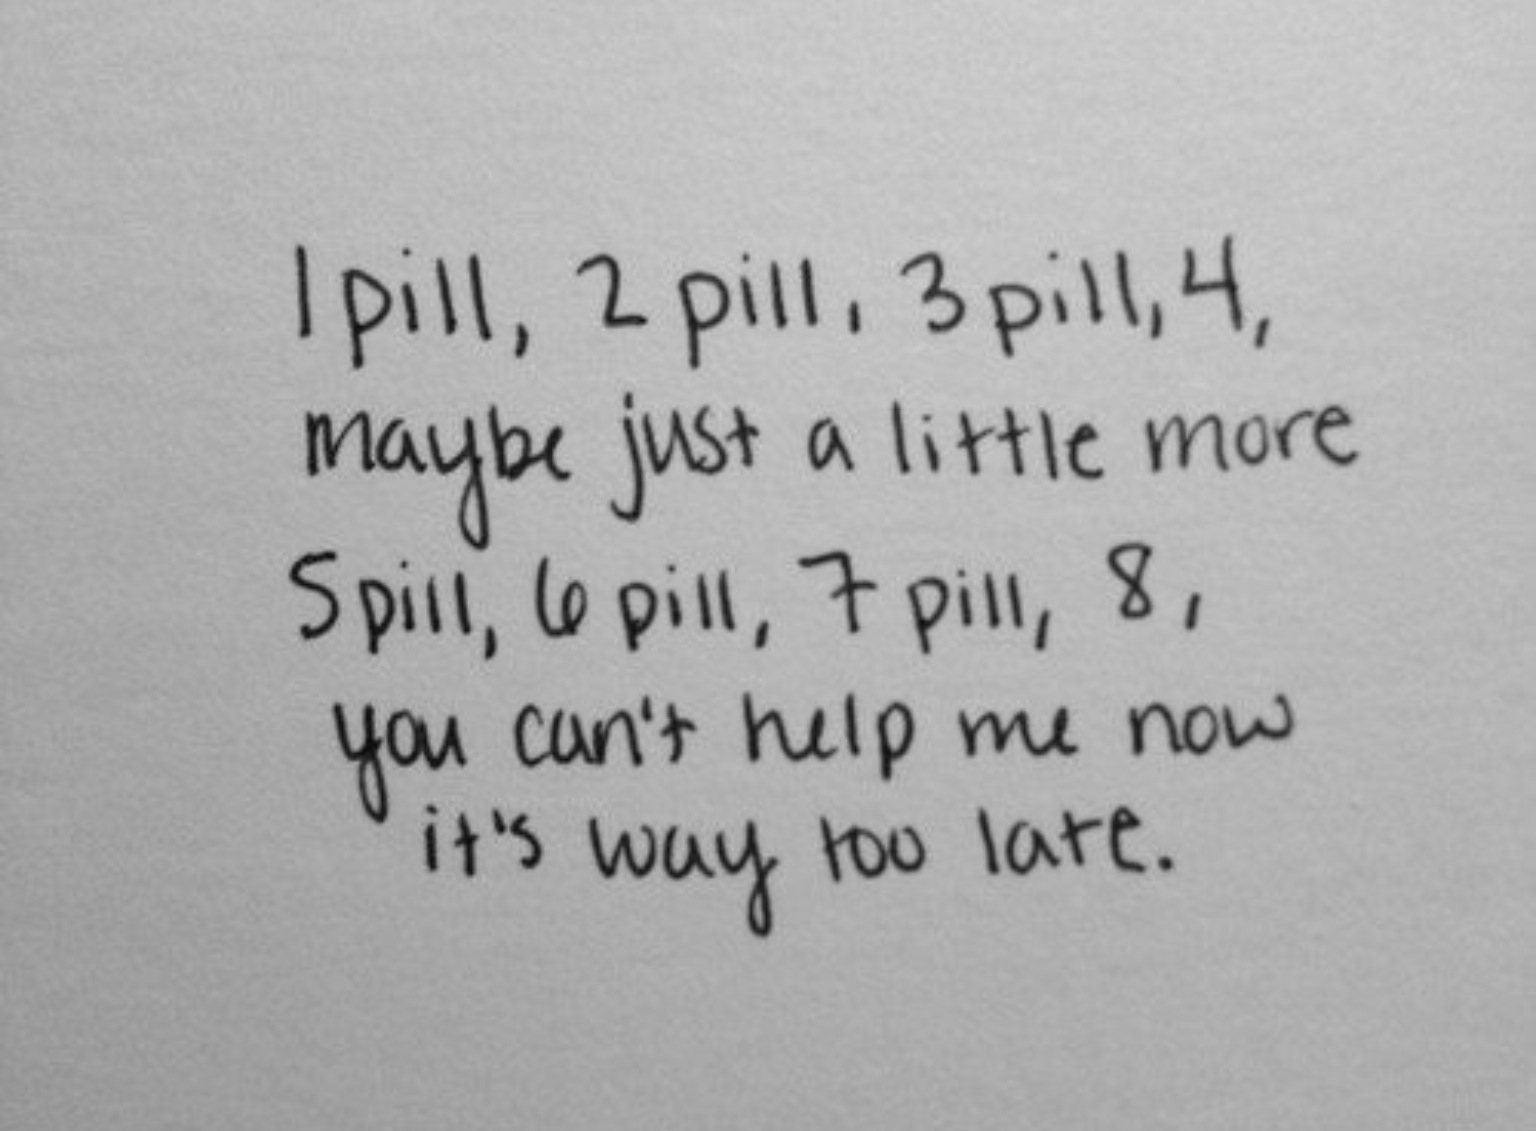 1 pill, 2 pill, 3 pill, 4,
maybe just a little more
5 pill, 6 pill, 7 pill, 8,
you can't help me now
it's way too late.